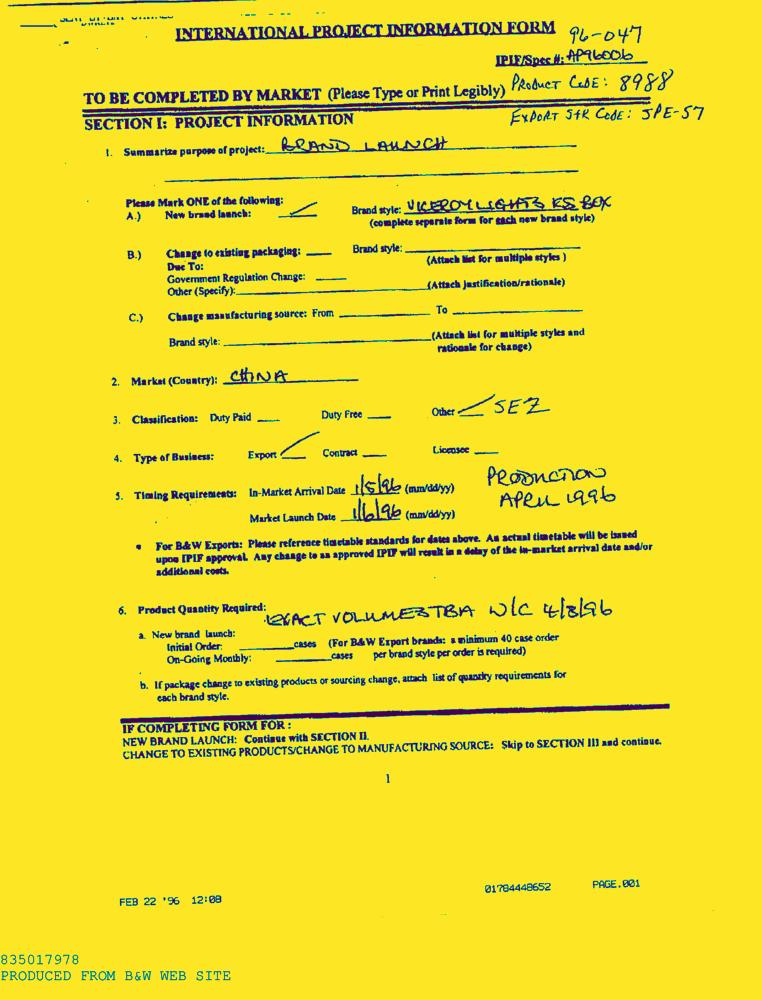 INTERNATIONAL PROJECT INFORMATION FORM
96-047
IPIF/Spec #: AP96006
TO BE COMPLETED BY MARKET (Please Type or Print Legibly) PRODUCT CODE: 8988
SECTION I: PROJECT INFORMATION EXPORT STR CODE: JPE-57
1. Summarize purpose of project: BRAND LAUNCH
Please Mark ONE of the following:
A.) New brand launch: Brand style: VICEROY LIGHTS KS BOX
(complete separate form for each new brand style)
B.) Change to existing packaging: ____ Brand style: ____
Due To: (Attach list for multiple styles )
Government Regulation Change: ____
Other (Specify): ____ (Attach justification/rationale)
C.) Change manufacturing source: From ____ To ____
Brand style: ____ (Attach list for multiple styles and
rationale for change)
2. Market (Country): CHINA
3. Classification: Duty Paid ____ Duty Free ____ Other SEZ
4. Type of Business: Export Contract ____ Licensee ____
5. Timing Requirements: In-Market Arrival Date 1/5/96 (mm/dd/yy) PRODUCTION
APRIL 1996
Market Launch Date 1/6/96 (mm/dd/yy)
• For B&W Exports: Please reference timetable standards for dates above. An actual timetable will be issued
upon IPIF approval. Any change to an approved IPIF will result in a delay of the in-market arrival date and/or
additional costs.
6. Product Quantity Required: EXACT VOLUMES TBA W/C 4/3/96
a. New brand launch:
Initial Order: ____cases (For B&W Export brands: a minimum 40 case order
On-Going Monthly: ____cases per brand style per order is required)
b. If package change to existing products or sourcing change, attach list of quantity requirements for
each brand style.
IF COMPLETING FORM FOR :
NEW BRAND LAUNCH: Continue with SECTION II.
CHANGE TO EXISTING PRODUCTS/CHANGE TO MANUFACTURING SOURCE: Skip to SECTION III and continue.
1
FEB 22 '96 12:08 01784448652 PAGE.001
835017978
PRODUCED FROM B&W WEB SITE